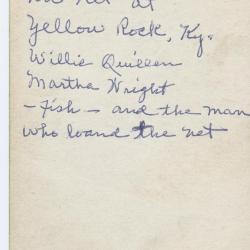 net at
Yellow Rock, Ky.
Willie Quillen
Martha Wright
- fish - and the man
who loand the net